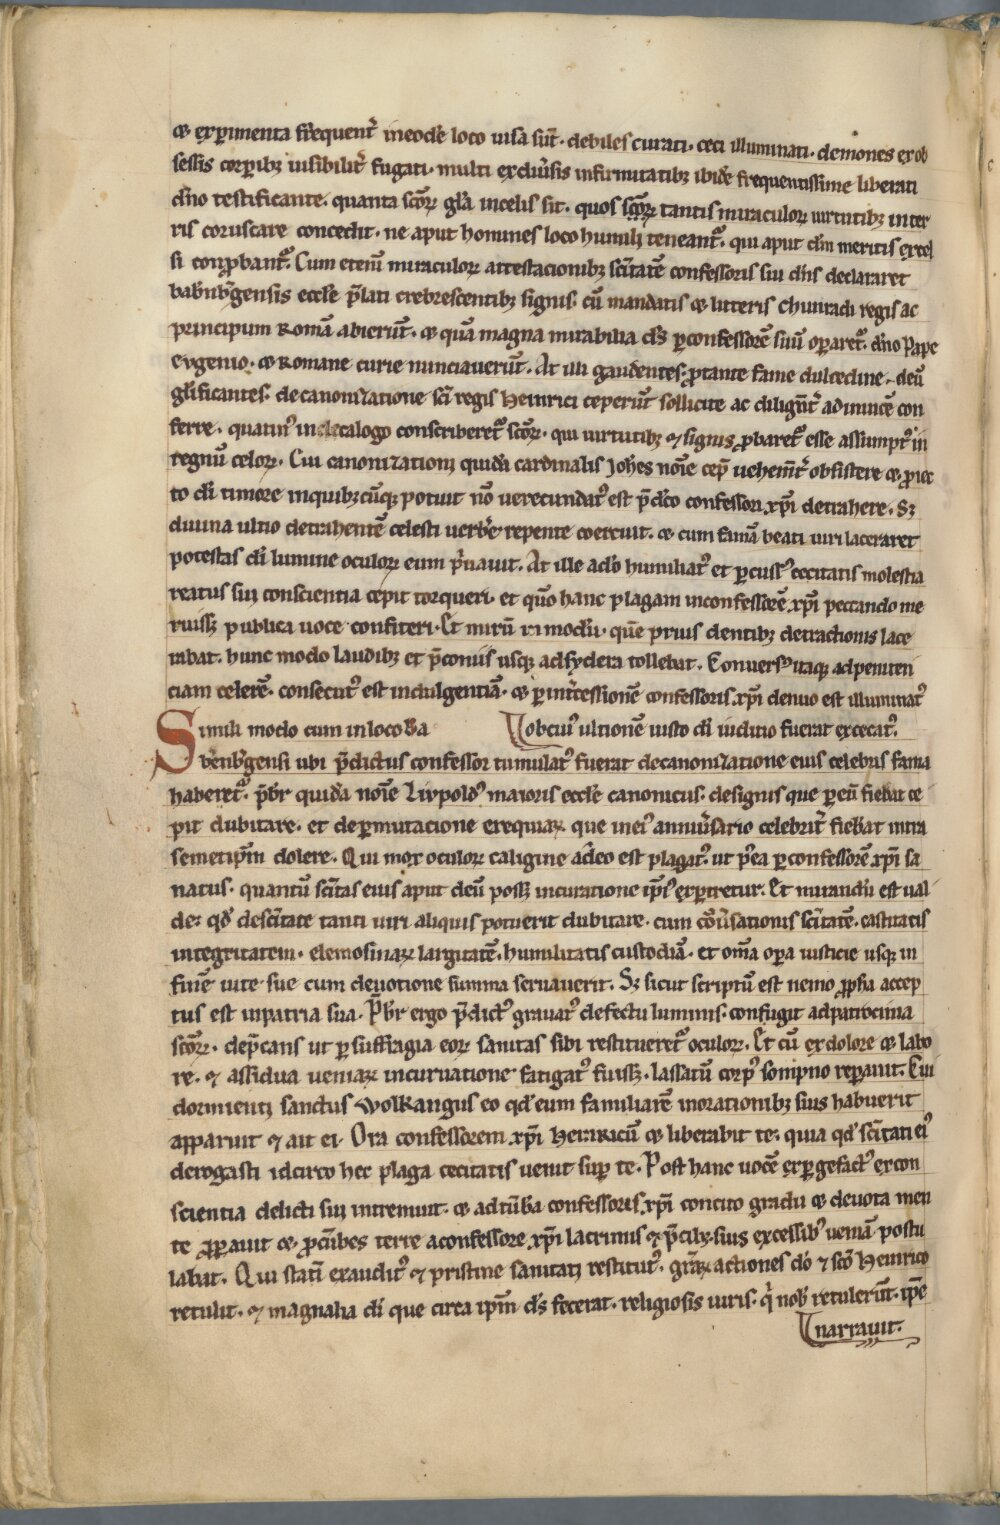 ⁊ exꝑimenta freq̄nent̾ ineodē loco uisa sūt. debiles curati. ceci illuminati. demones ex ob
sessis corꝑibꝫ uisibilit̾ fugati. multi exdiu̾sis infirmitatibꝫ ibidē frequentissime liberati
dn̄o testificante. quanta scōꝝ gl̄a incelis sit. quos scōꝝ tantis miraculoꝝ uirtutibꝫ in ter
ris coruscare concedit. ne aput homines loco humili teneant᷑. qui aput dm̄ meritis excel
si conꝓbant᷑. Cum etenī miraculoꝝ attestacionibꝫ scītatē confessoris sui dn̄s declararet
babēb̾gensis eccl̄e p̄lati crebrescentibꝫ signis. cū mandatis ⁊ litteris Chunradi regis ac
principum Romā abierūt. ⁊ quā magna mirabilia dn̄s ꝑconfessorē suū oꝑaret᷑. dn̄o Pape
eugenio. ⁊ Romane curie nunciauerūt. At illi gaudentes. ꝓtante fame dulcedine. deū
gl̄ificantes. decanonizatione sc̄i regis Heinrici ceperūt sollicite ac diligēt̾ adinuicē con
ferre. quatin᷒ incatalogo conscriberet᷑ scōꝝ. qui uirtutibꝫ ⁊ signis ꝓbaret᷑ esse assumpt᷒ in
regnū celoꝝ. Cui canonizationi quidā cardinalis Joh̄es noīe cep̄ uehemēt̾ obsistere ⁊ ꝓiec
to di̅ timore inquibꝫcūqꝫ potuit nō uerecundat᷒ est p̄dc̄o confessori xp̄i detrahere. Sꝫ
diuina ultio detrahentē celesti uerb̾e repente coercuit. ⁊ cum famā beati uiri laceraret
potestas di̅ lumine oculoꝝ eum p̾uauit. At ille adō humiliat᷒ et ꝑcuss᷒ cecitatis molestia
reatus sui conscientia cepit torqueri. et quō hanc plagam inconfessorē xp̄i peccando me
ruissꝫ publica uoce confiteri. Et mirū ī modū. quē prius dentibꝫ detractionis lace
rabat. hunc modo laudibꝫ et p̄coniis usqꝫ adsydera tollebat. Conuers᷒ itaqꝫ adpeniten
ciam celerē. consecut᷒ est indulgentiā. ⁊ ꝑ int̾cessionē confessoris xp̄i denuo est illuminat᷒
Simili modo cum inloco Ba
obcui᷒ ultionē iusto di̅ iudicio fuerat excecat᷒.
bēnb̾gensi ubi p̄dictus confessor tumulat᷒ fuerat decanonizatione eius celebris fama
haberet᷑. pb̄r quidā noīe Livpold᷒ maioris eccl̄e canonicus. designis que ꝑ eū fiebāt ce
pit dubitare. et deꝑmutacione exequiaꝝ. que inei᷒ anniu̾sario celebrit̾ fiebāt intra
semetipm̄ dolere. Qui mox oculoꝝ caligine adeo est plagat᷒. ut p̄ea ꝑ confessorē xp̄i sa
natus. quantū scītas eius aput deū possꝫ incuratione ip̄i᷒ exꝑiretur. Et mirandū est ual
de. qd̄ descītate tanti uiri aliquis potuerit dubitare. cum cōu̾sationis scītatē. castitatis
integritatem. elemosinaꝝ largitatē. humilitatis custodiā. et om̄a oꝑa iusticie usqꝫ in
finē uite sue cum deuotione summa seruauerit. Sꝫ sicut scriptū est nemo ꝓph̄a accep
tus est inpatria sua. Pb̄r ergo p̄dict᷒ grauat᷒ defectu luminis. confugit adpatrocinia
scōꝝ. dep̄cans ut ꝑ suffragia eoꝝ sanitas sibi restitueret᷑ oculoꝝ. Et cū exdolore ⁊ labo
re. ⁊ assidua ueniaꝝ incuruatione fatigat᷒ fuissꝫ. lassatū corp᷒ sompno reparauit. Cui
dormienti sanctus Wolkangus eo qd̄ eum familiarē inorationibꝫ suis habuerit
apparuit ⁊ ait ei. Ora confessorem xp̄i Heinricū ⁊ liberabit te. quia qd̄ scītati ei᷒
derogasti idcirco hec plaga cecitatis uenit suꝑ te. Post hanc uocē exꝑgefact᷒ ex con
scientia delicti sui intremuit. ⁊ adtūba confessoris xp̄i concito gradu ⁊ deuota men
te ꝓꝑauit ⁊ ꝓcūbes terre aconfessore xp̄i lacrimis ⁊ p̄cibꝫ suis excessib᷒ ueniā postu
labat. Qui statī exaudit᷒ ⁊ pristine sanitati restitut᷒. gr̄aꝝ actiones dō ⁊ scō Heinrico
retulit. ⁊ magnalia di̅ que circa ipm̄ dn̄s fecerat. religiosis uiris. q̾ nob᷒ retulerūt. ip̄e
narrauit.